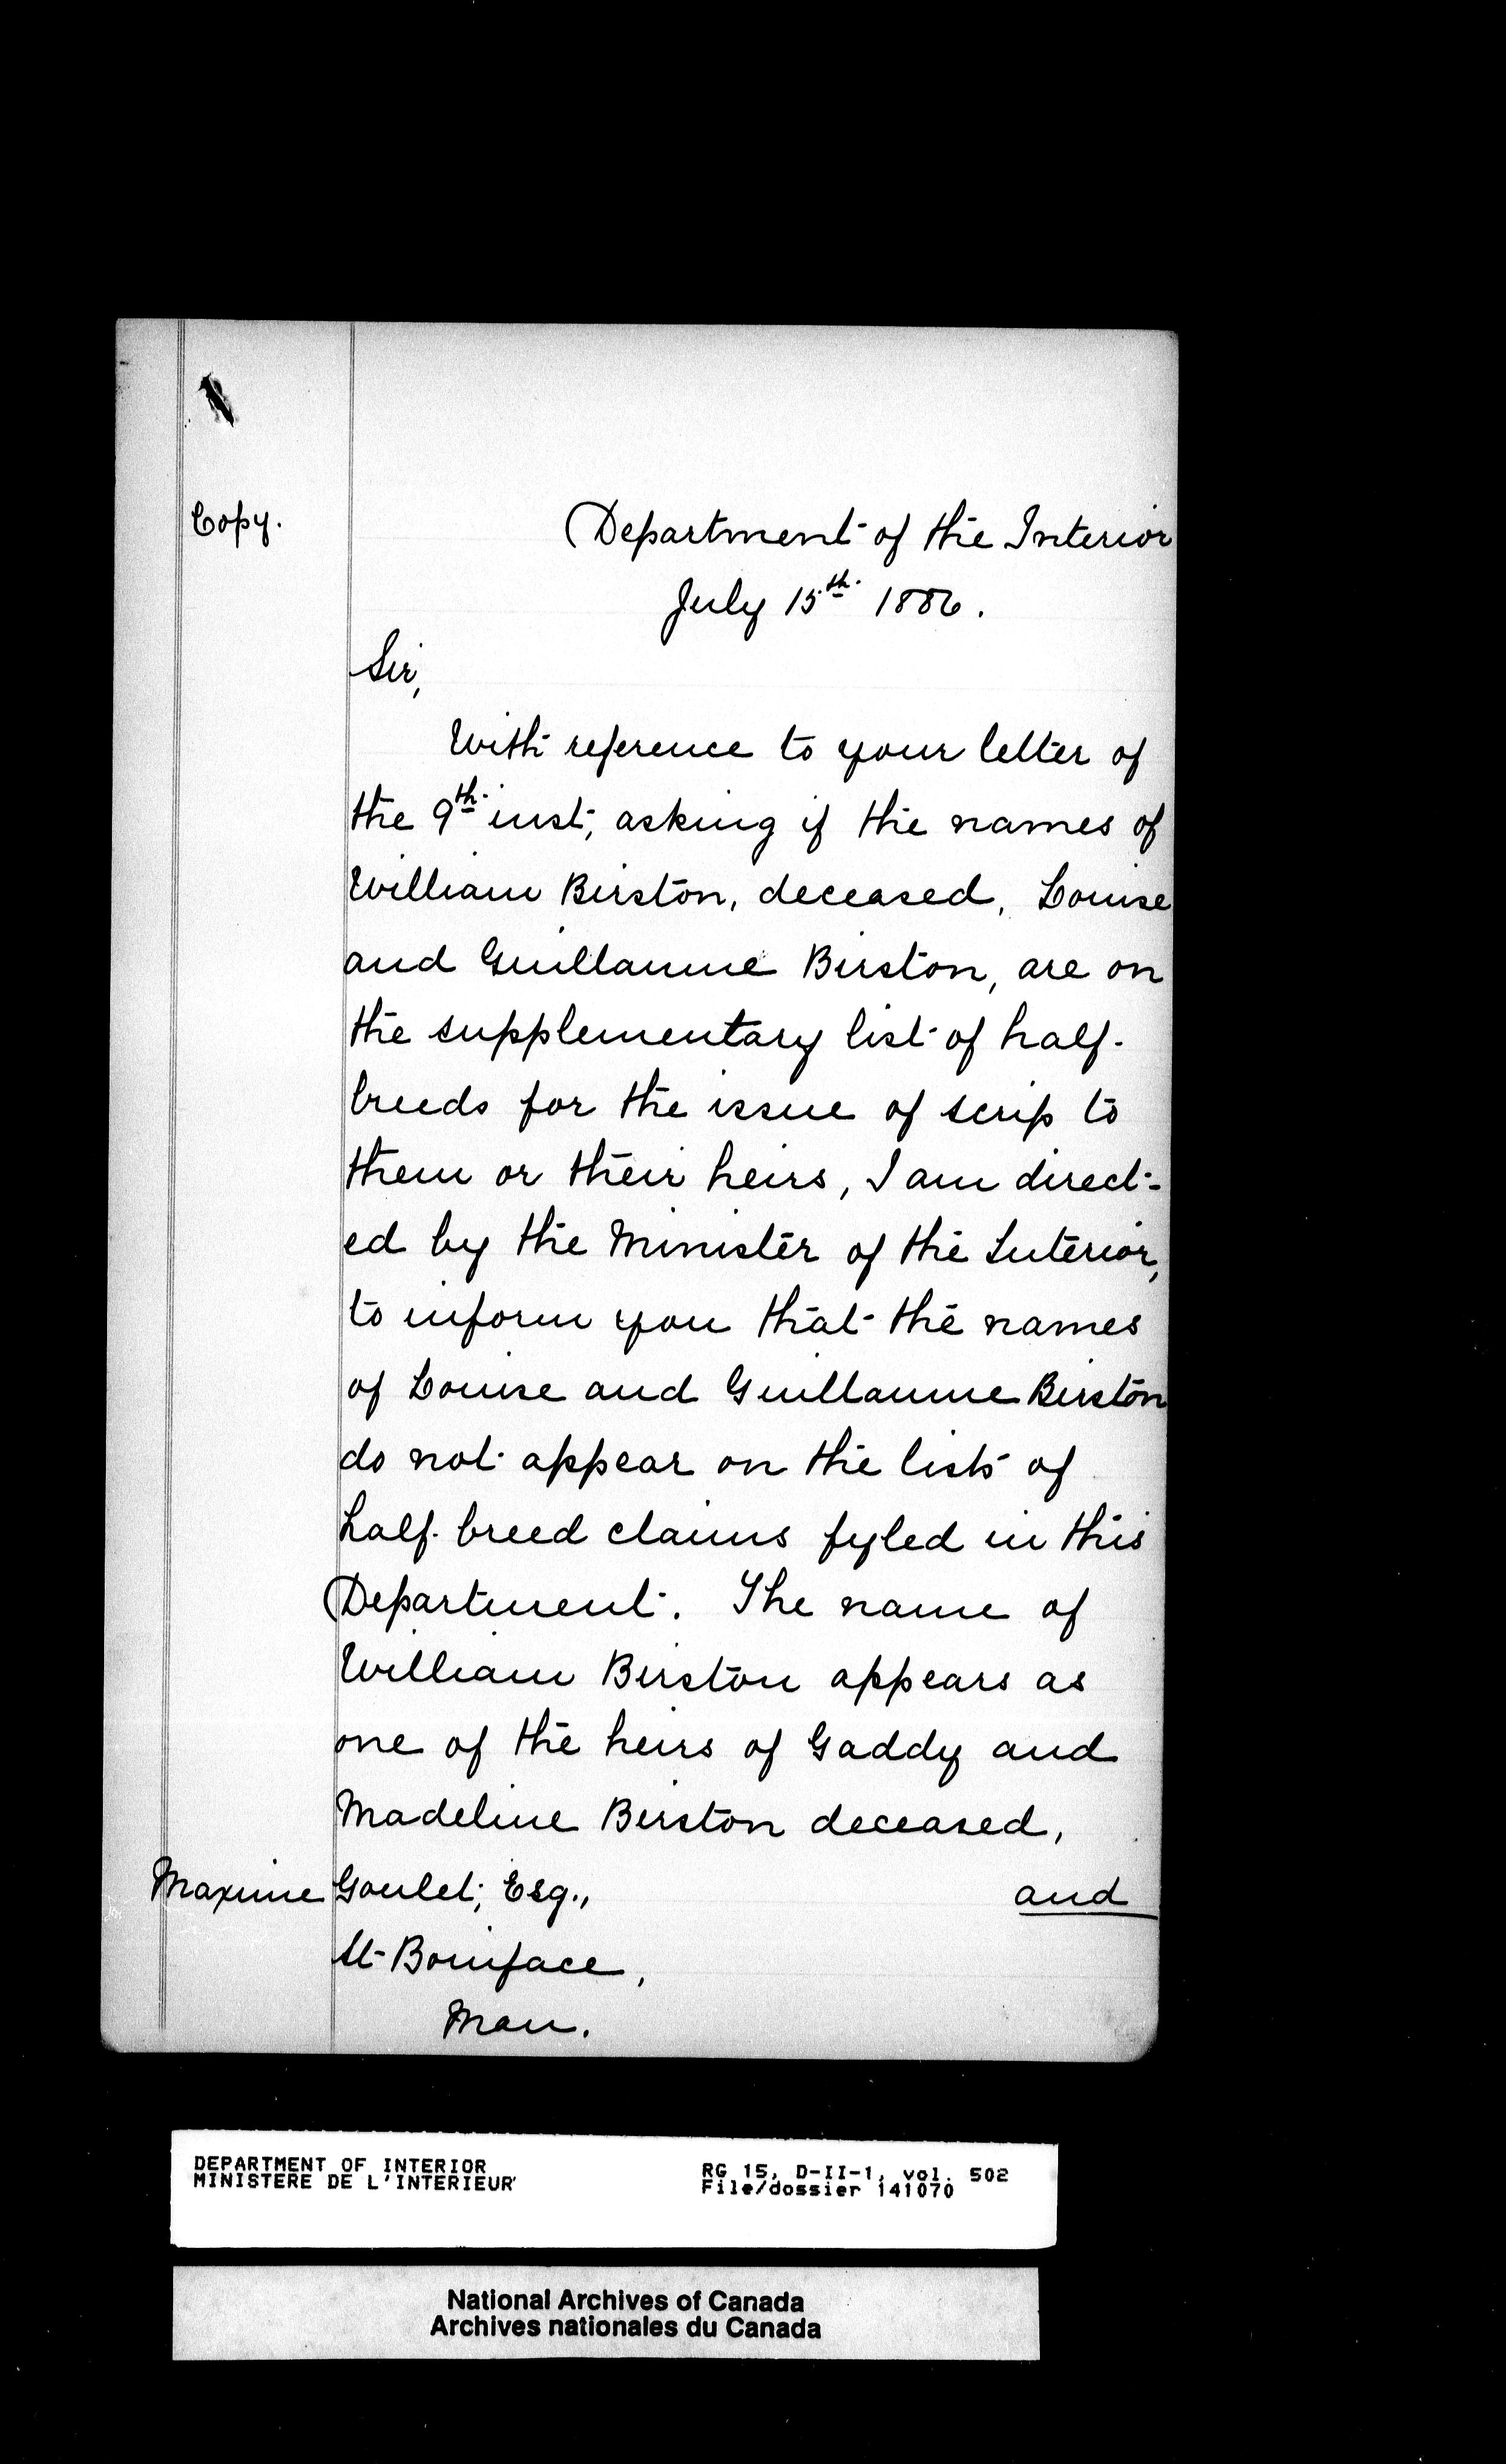 Copy.
Department of the Interior
July 15th. 1886.
Sir,
With reference to your letter of
the 9th. inst, asking if the names of
William Birston, deceased, Louise
and Guillaume Birston, are on
the supplementary list of half-
breeds for the issue of scrip to
them or their heirs, I am direct-
ed by the Minister of the Interior,
to inform you that the names
of Louise and Guillaume Birston
do not appear on the lists of
half-breed claims fyled in this
Department. The name of
William Birston appears as
one of the heirs of Gaddy and
Madeline Birston deceased,
Maxime Goulet, Esq., and
St Boniface,
Man.
DEPARTMENT OF INTERIOR
MINISTERE DE L'INTERIEUR
RG 15, D-II-1, vol. 502
File/dossier 141070
National Archives of Canada
Archives nationales du Canada